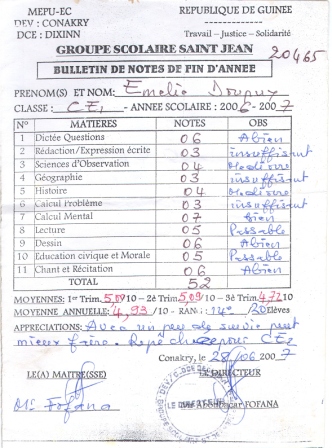 MEPU-EC REPUBLIQUE DE GUINEE
DEV : CONAKRY
DCE : DIXINN Travail – Justice – Solidarité
GROUPE SCOLAIRE SAINT JEAN 20465
BULLETIN DE NOTES DE FIN D'ANNEE
PRENOM(S) ET NOM: Emelie
CLASSE : CE1 - ANNEE SCOLAIRE : 2006 - 2007
N° MATIERES NOTES OBS
1 Dictée Questions 06 Abien
2 Rédaction/Expression écrite 03 insuffisant
3 Sciences d'Observation 04 Mediocre
4 Géographie 03 insuffisant
5 Histoire 04 Mediocre
6 Calcul Problème 03 insuffisant
7 Calcul Mental 07 bien
8 Lecture 05 Passable
9 Dessin 06 Abien
10 Education civique et Morale 05 Passable
11 Chant et Récitation 06 Abien
TOTAL 52
MOYENNES: 1er Trim. 5,09 10 – 2è Trim. 5,09 10 – 3è Trim. 4,72 10
MOYENNE ANNUELLE: 4,93 /10 - RANG : 14è /20 Elèves
APPRECIATIONS: Avec un peu de suivie peut
mieux faire. pour CE2
Conakry, le 28/06 2007
LE(A) MAITRE(SSE) LE DIRECTEUR
Mr Fofana
LE DIRECTEUR
Aboubacar FOFANA